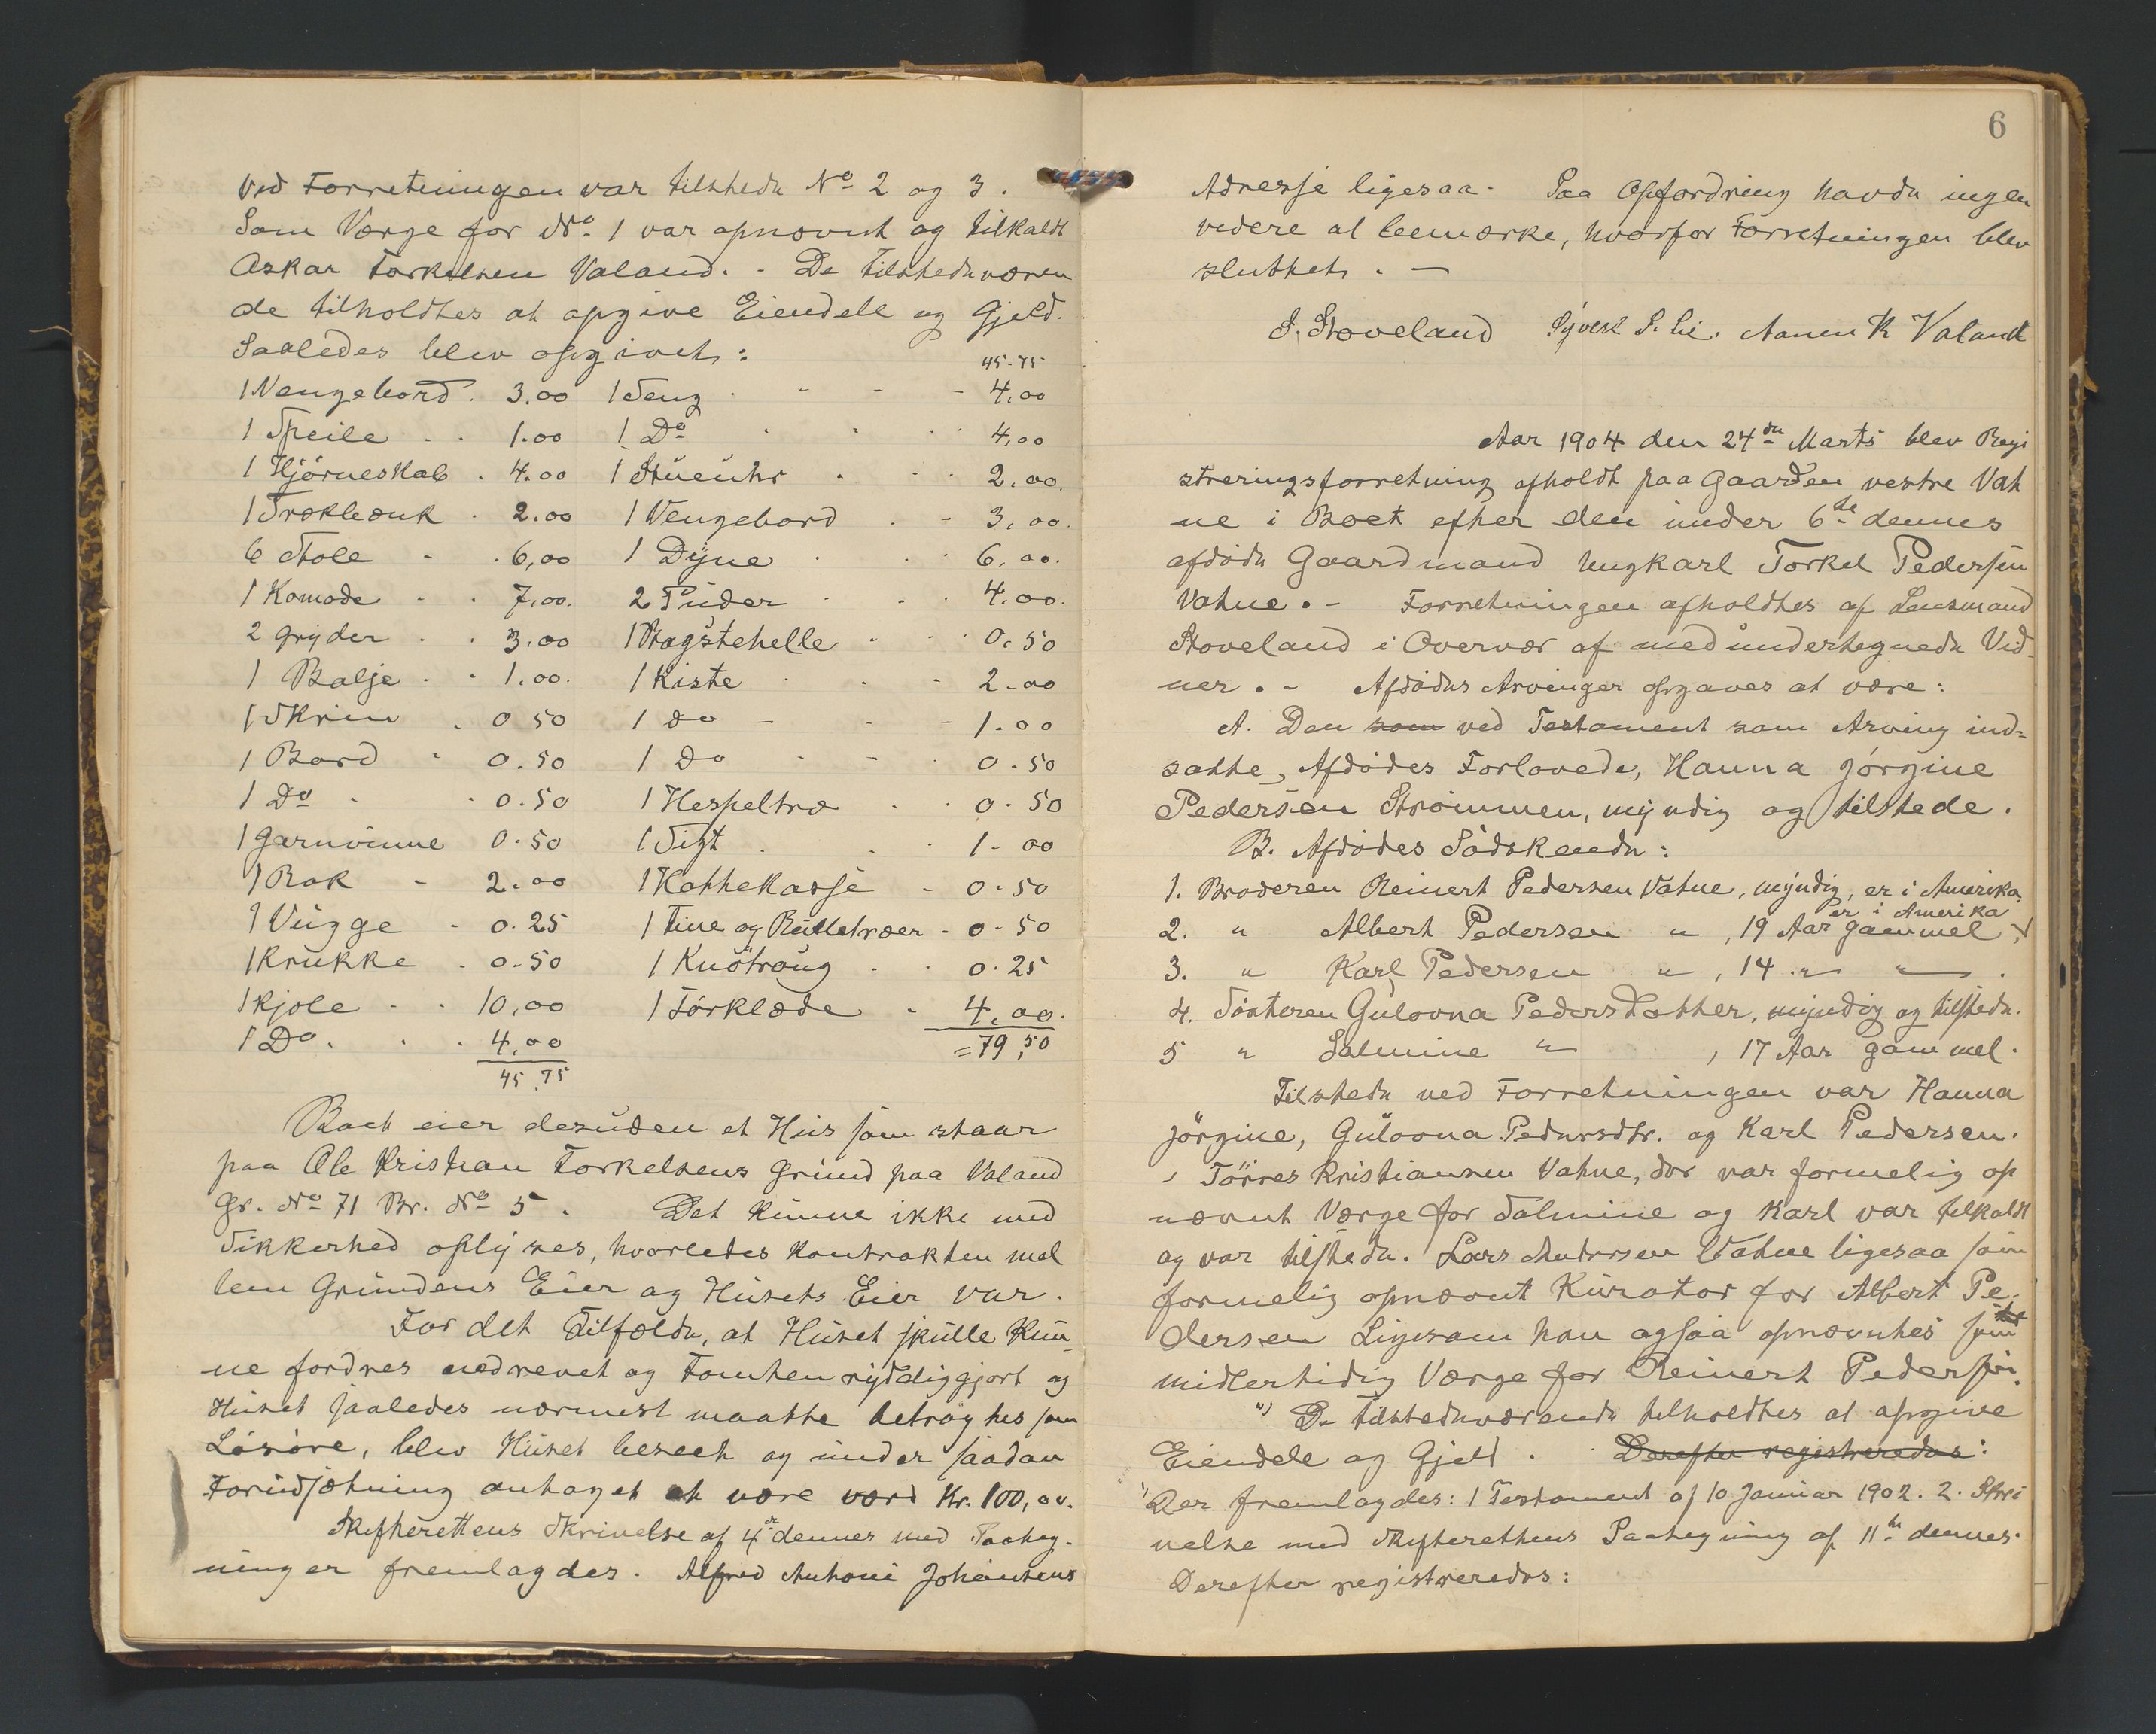 Ved Forretningen var tilstede No 2 og 3.
Som Værge for No 1 var opnævnt og tilkaldt
Oskar Torkelsen Valand. - De tilstedeværen
de tilholdtes at opgive Eiendele og Gjeld.
Saaledes blev opgivet:
45-75
1 Vengebord . 3.00 1 Seng . - - - 4,00
1 Speile . . 1.00 1 Do . . . . 4,00
1 Hjørneskab . 4.00 1 Stueuhr . . . 2.00.
1 Trækbænk . 2.00 1 Vengebord . - 3,00.
6 Stole - . 6,00 1 Dyne . . . 6,00.
1 Komode - . 7,00. 2 Puder . . . 4.00.
2 Gryder . . 3.00 1 Bagstehelle . . . 0.50
1 Balje . . 1.00. 1 Kiste . . - 2.00
1 Skrin . 0 50 1 do - - - 1.00
1 Bord . 0.50 1 Do - - - 0.50
1 Do . . 0.50 1 Hespeltræ . . 0.50
1 Garnvinne 0.50 1 Sigt . . . 1-00
1 Rok - 2.00 1 Kaffekasse - 0.50
1 Vugge - 0.25 1 Tine og Rulletræer - 0-50
1 Krukke . 0-50 1 Knøtroug . . 0.25
1 Kjole - . 10,00 1 Tørklæde - 4,00.
1 Do. . . 4,00 = 79,50
45.75
Boet eier desuden et Hus som staar
paa Ole Kristian Torkelsens Grund paa Valand
Gr. No 71 Br. No 5 . Det kunne ikke med
Sikkerhed oplyses, hvorledes Kontrakten mel
lem Grundens Eier og Husets Eier var.
For det Tilfælde, at Huset skulle Kun-
ne fordres nedrevet og Tomten ryddiggjort og
Huset saaledes nærmest maatte betragtes som
Løsøre, blev Huset beseet og under saadan
Forudsætning antaget at være værd Kr. 100,00.
Skifterettens Skrivelse af 4de dennes med Paateg-
ninger fremlagdes. Alfred Antoni Johansens
6
Adresse ligesaa. Paa Opfordring havde ingen
videre at bemærke, hvorfor Forretningen blev
sluttet. -
S. Stoveland Syvert S. Lie. Aanen K Valand
Aar 1904 den 24de Marts blev Regi
streringsforretning afholdt paa Gaarden vestre Vat
ne i Boet efter den under 6te dennes
afdøde Gaardmand Ungkarl Torkel Pedersen
Vatne. - Forretningen afholdtes af Lensmand
Stoveland i Overvær af medundertegnede Vid-
ner. - Afdødes Arvinger opgaves at være:
A. Den som ved Testament som Arving ind-
satte, Afdødes Forlovede, Hanna Jørgine
Pedersen Strømmen, myndig og tilstede.
B. Afdødes Sødskende:
1. Broderen Reinert Pedersen Vatne, myndig, er i Amerika.
er i Amerika
2. " Albert Pedersen " , 19 Aar gammel,
3. " Karl Pedersen " , 14 " " .
4. Søsteren Gulovna Pedersdatter, myndig og tilstede.
5 " Salmine " , 17 Aar gammel.
Tilstede ved Forretningen var Hanna
Jørgine, Gulovna Pedersdtr. og Karl Pedersen.
Tørres Kristiansen Vatne, der var formelig op
nævnt Værge for Salmine og Karl var tilkaldt
og var tilstede. Lars Andersen Vatne ligesaa som
formelig opnævnt Kurator for Albert Pe-
dersen Ligesom han ogsaa opnævntes som
midlertidig Værge for Reinert Pedersen.
") De tilstedeværende tilholdtes at opgive
Eiendele og Gjeld . Derefter registreredes:
" Der fremlagdes: 1 Testament af 10 Januar 1902. 2. Skri
velse med Skifterettens Paategning af 11te dennes.
Derefter registreredes: